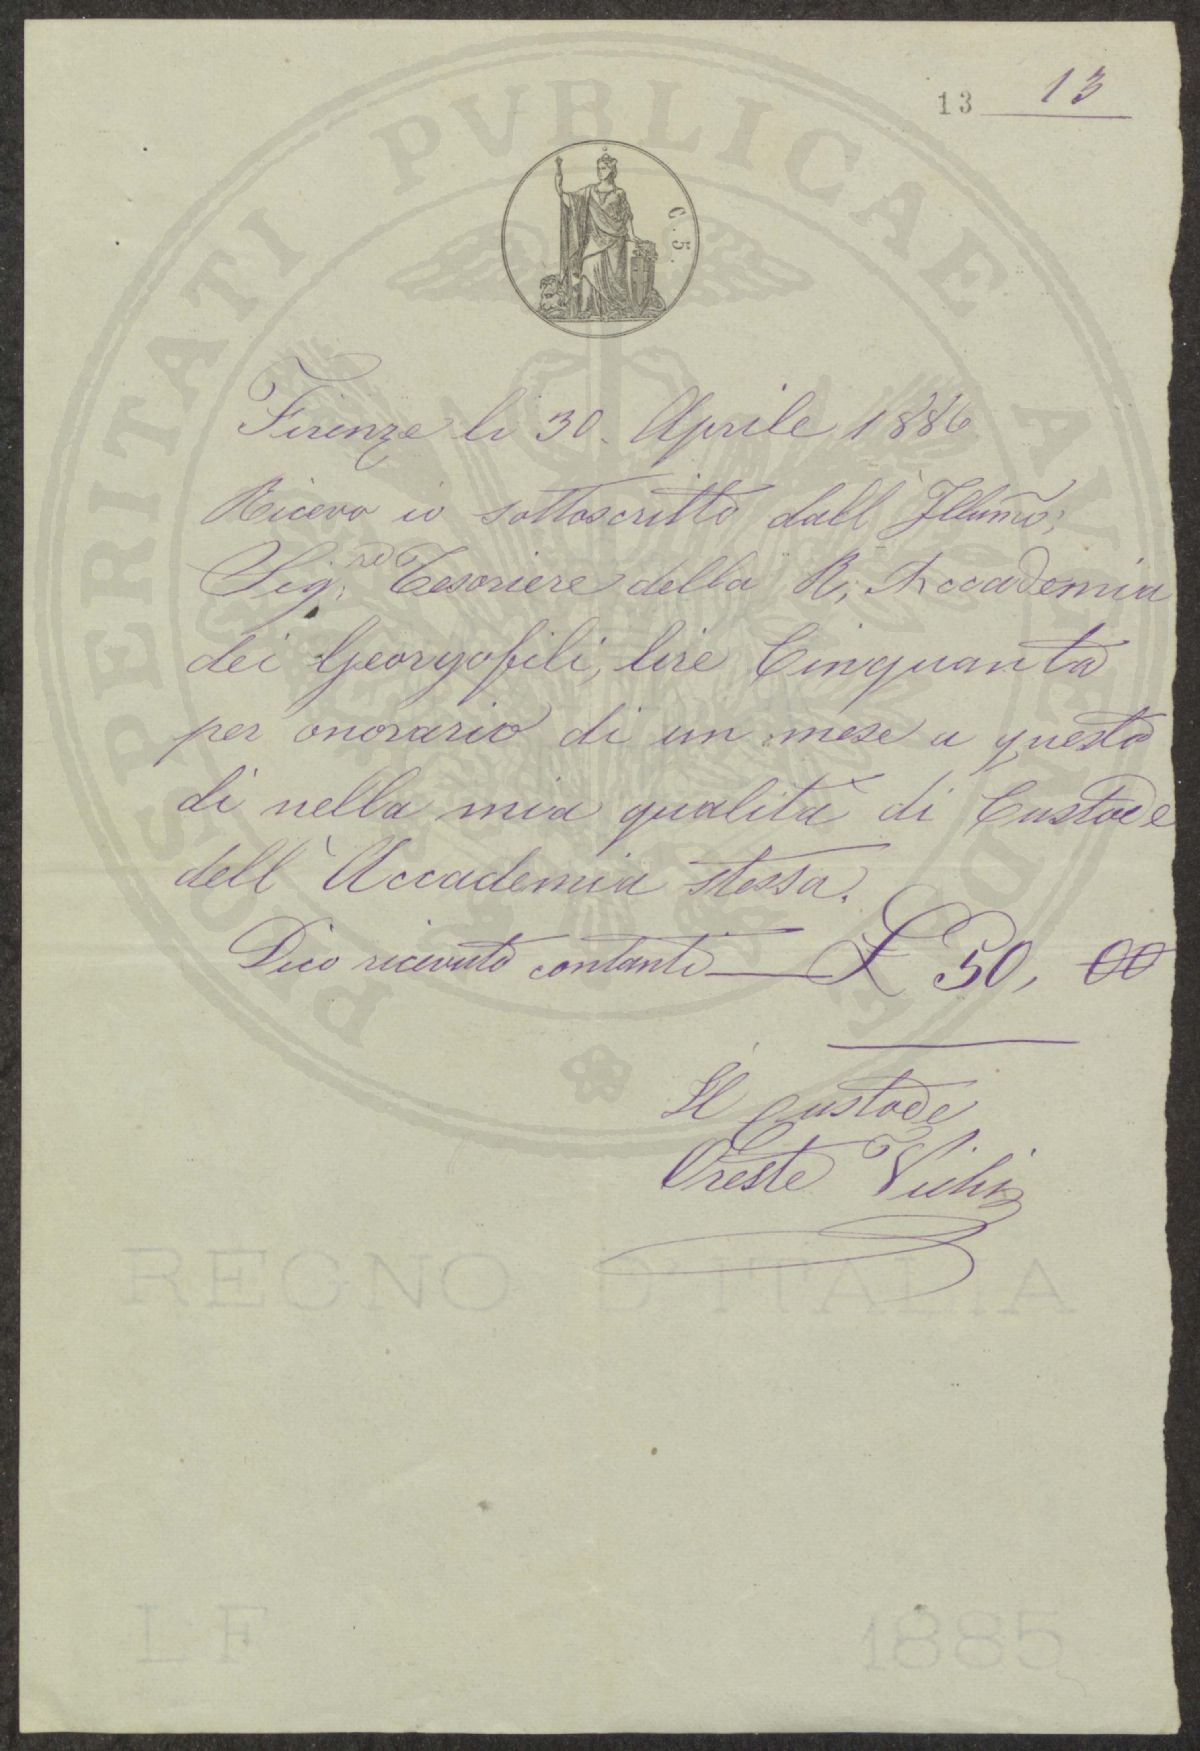 13 13
C. 5.
Firenze li 30. Aprile 1886
Ricevo io sottoscritto dall' Illumo;
Sig.re Tesoriere della R; Accademia
dei Georgofili, lire Cinquanta
per onorario di un mese a questo
dì nella mia qualità di Custode
dell' Accademia stessa.
Dico ricevuto contanti £ 50, 00
Il Custode
Oreste Vichi
REGNO D'ITALIA
L F 1885